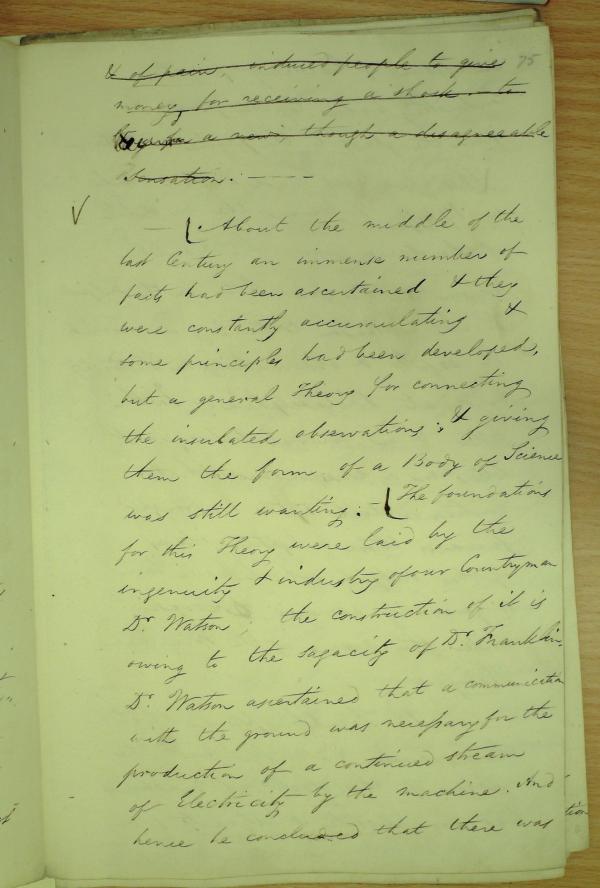 75
& of pain, induced people to give
money for receiving a shock to
for a new, though a disagreeable
sensation. - - - -
V
— [ About the middle of the
last Century an immense number of
facts had been ascertained & they
were constantly accumulating &
some principles had been developed,
but a general Theory for connecting
the insulated observations; & giving
them the form of a Body of Science
was still wanting. - [ The foundations
for this Theory were laid by the
ingenuity & industry of our Countryman
Dr. Watson; the construction of it is
owing to the sagacity of Dr. Franklin.
Dr. Watson ascertained that a communication
with the ground was necessary for the
production of a continued stream
of Electricity by the machine. And
hence he concluded that there was